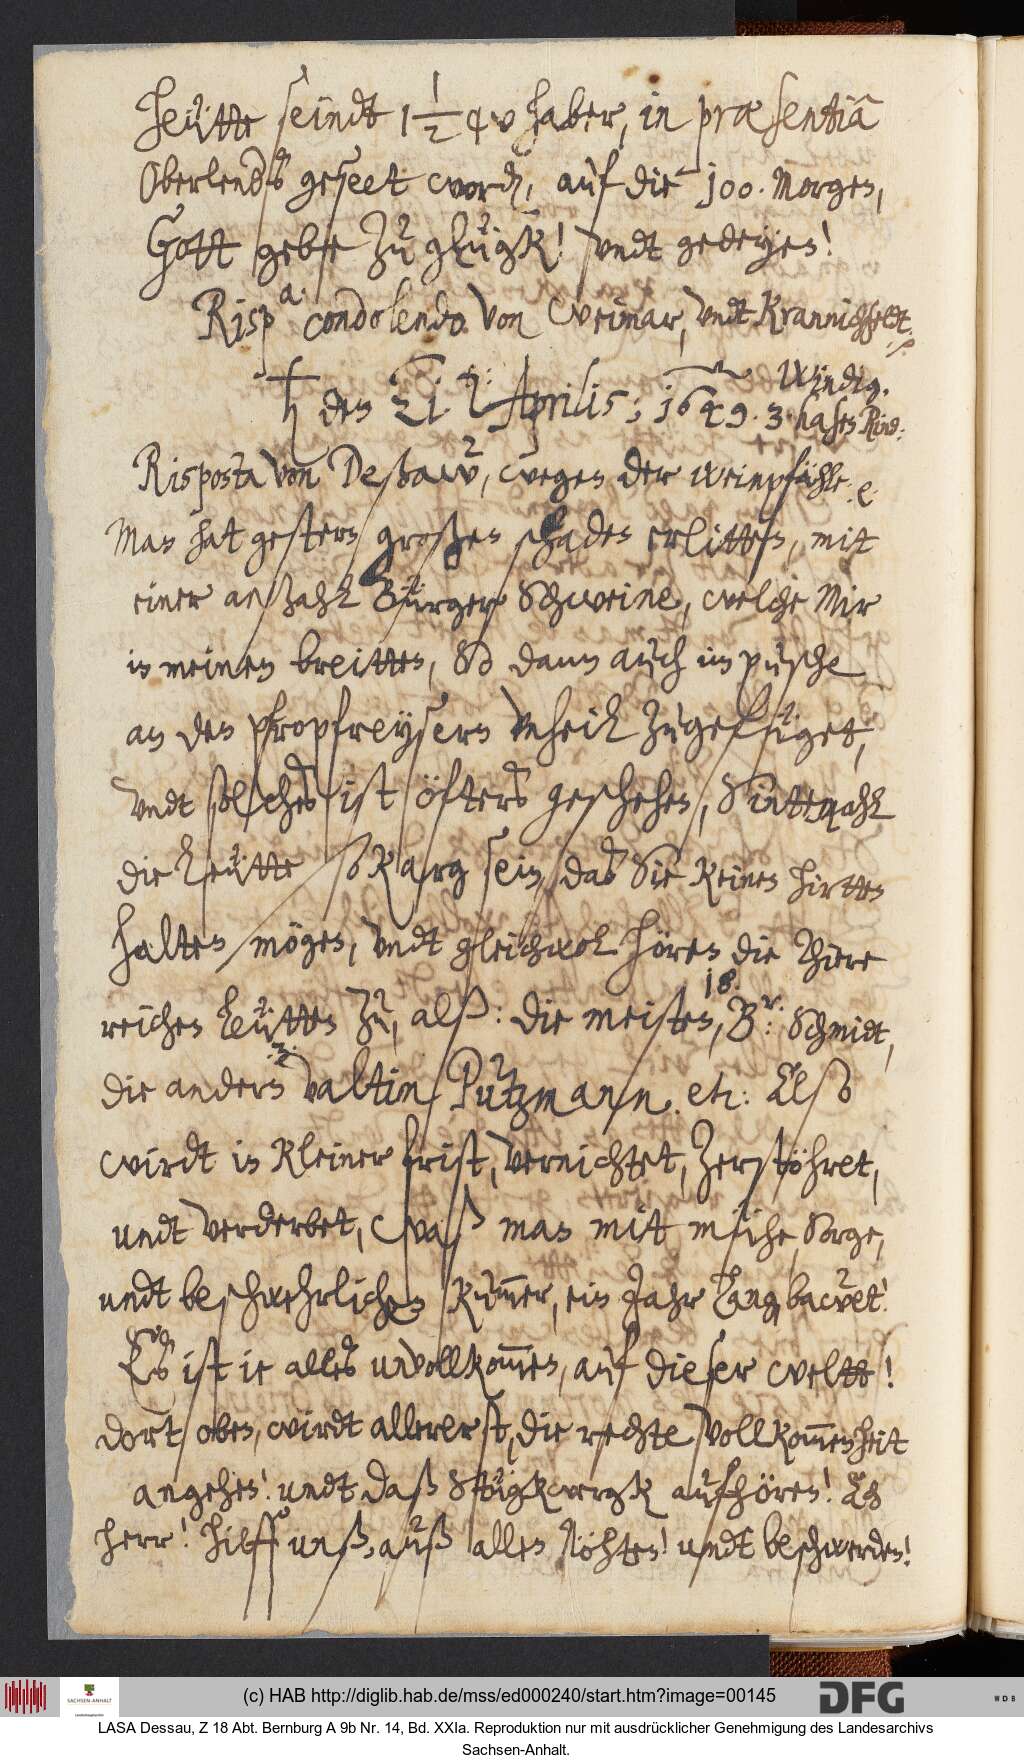 Heütte seindt 1½ 4 w haber, in præsentiâ
Oberlend{er}s geseet word{en}, auf die 100. Morgen,
Gott gebe zu glügk! vndt gedeyen!
Risp{ost}a condolendo von Weimar, vndt Krannichfeldt.
♄ den 21. Aprilis; 1649. 3 hasen Rind:
Windig.
Risposta von Deßaw, wegen der Weinpfähle.
Man hat gestern großen schaden erlitten, mit
einer anzahl Bürger Schweine, welche Mir
in meinen breitten, So dann auch im pusche
an den Pfropfreysern vnheil zugefüget,
vndt solches ist öfters geschehen, Sintemahl
die Leütte so karg sein, das Sie keinen hirtten
halten mögen, vndt gleichwol hören die Thiere
reichen Leütten zu, alß: die meisten, 18. B{ürgermeiste}r: Schmidt,
die andern 3. Valtin Putzmann. etc: Also
wirdt in kleiner frist, vernichtet, zerstöhret,
undt verderbet, waß man mit mühe, Sorge,
undt beschwehrlichen kummer, ein Jahr lang bawet!
Es ist ie alles unvollkommen, auf dieser weltt!
dort oben, wirdt allererst, die rechte vollkommenheit
angehen! undt daß Stügkwergk aufhören! Ach
herr! hilff unß, auß allen Nöhten! undt beschwerden!
(c) HAB http://diglib.hab.de/mss/ed000240/start.htm?image=00145
SACHSEN-ANHALT
DFG
WDB
LASA Dessau, Z 18 Abt. Bernburg A 9b Nr. 14, Bd. XXIa. Reproduktion nur mit ausdrücklicher Genehmigung des Landesarchivs
Sachsen-Anhalt.